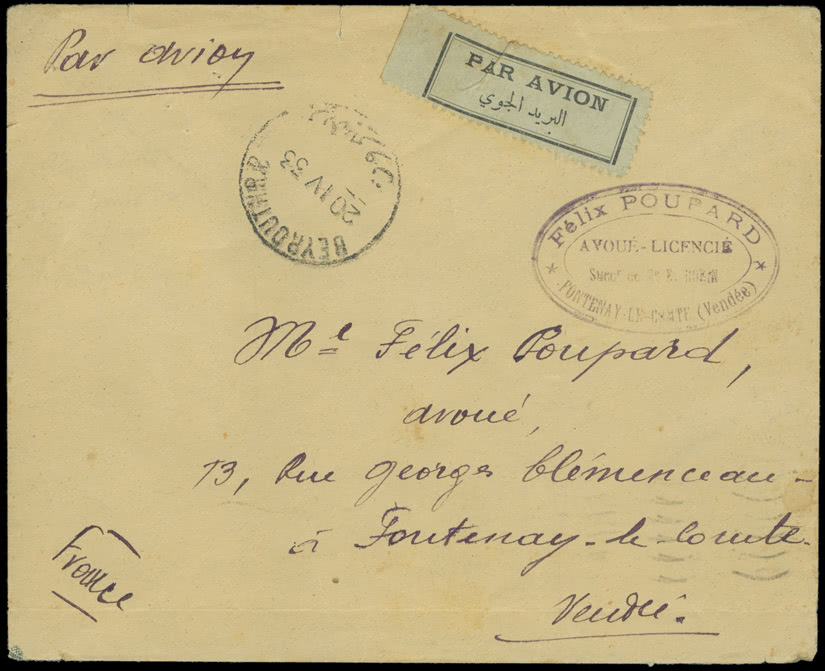 Par avion
PAR AVION
البريد الجوي
BEYROUTH R.P.
20 IV 33
Félix POUPARD
AVOUÉ-LICENCIÉ
Succr de
FONTENAY-LE-COMTE (Vendée)
Me Félix Poupard,
avoué,
13, Rue Georges Clémenceau-
à Fontenay-le-Comte-
Vendée.
France